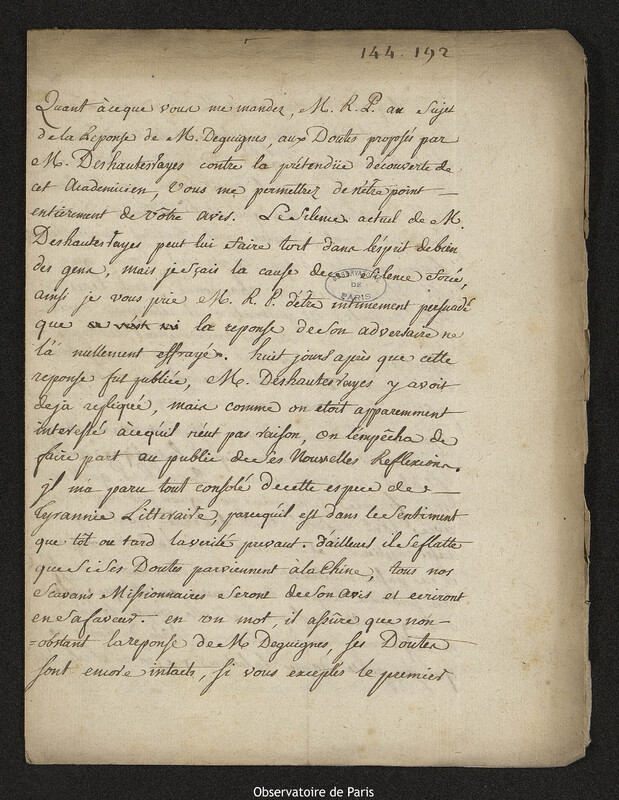 144. 192
Quant à ce que vous me mandez, M. R. P. au sujet
de la Reponse de M. Deguignes, aux Doutes proposés par
M. Deshautesrayes contre la prétendüe découverte de
cet Academicien, Vous me permettrez de n'être point
entierement de vôtre avis. Le silence actuel de M.
Deshautesrayes peut lui faire tort dans l'esprit de bien
des gens, mais je sçais la cause de ce silence forcé,
ainsi je vous prie M. R. P. d'être intimement persuadé
que la reponse de son adversaire ne
l'a nullement effrayé. huit jours après que cette
reponse fut publiée, M. Deshautesrayes y avoit
deja repliqué, mais comme on etoit apparemment
interessé à ce qu'il n'eut pas raison, on l'empêcha de
faire part au public de ses Nouvelles Reflexions.
il m'a paru tout consolé de cette espece de
tyrannie Litteraire, parcequ'il est dans le sentiment
que tôt ou tard la verité prevaut. d'ailleurs il se flatte
que si ses Doutes parviennent a la Chine, tous nos
Scavans Missionnaires seront de son avis et ecriront
en sa faveur. en un mot, il assûre que non-
=obstant la reponse de M. Deguignes, ses Doutes
sont encore intacts, si vous exceptés le premier
OBSERVATOIRE
DE
PARIS
Observatoire de Paris